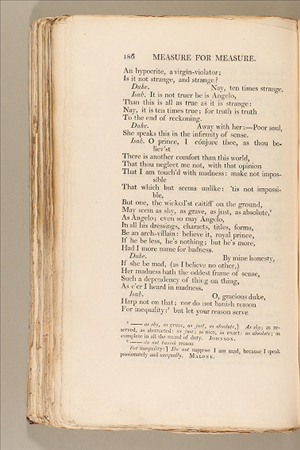 186 MEASURE FOR MEASURE.
An hypocrite, a virgin-violator;
Is it not strange, and strange?
Duke. Nay, ten times strange.
Isab. It is not truer he is Angelo,
Than this is all as true as it is strange:
Nay, it is ten times true; for truth is truth
To the end of reckoning.
Duke. Away with her:—Poor soul,
She speaks this in the infirmity of sense.
Isab. O prince, I cónjure thee, as thou be-
liev'st
There is another comfort than this world,
That thou neglect me not, with that opinion
That I am touch'd with madness: make not impos-
sible
That which but seems unlike: 'tis not impossi-
ble,
But one, the wicked'st caitiff on the ground,
May seem as shy, as grave, as just, as absolute,
As Angelo; even so may Angelo,
In all his dressings, characts, titles, forms,
Be an arch-villain: believe it, royal prince,
If he be less, he's nothing; but he's more,
Had I more name for badness.
Duke. By mine honesty,
If she be mad, (as I believe no other,)
Her madness hath the oddest frame of sense,
Such a dependency of thing on thing,
As e'er I heard in madness.
Isab. O, gracious duke,
Harp not on that; nor do not banish reason
For inequality: but let your reason serve
— as shy, as grave, as just, as absolute,] As shy; as re-
served, as abstracted: as just; as nice, as exact: as absolute; as
complete in all the round of duty. JOHNSON.
— do not banish reason
For inequality:] Do not suppose I am mad, because I speak
passionately and unequally. MALONE.